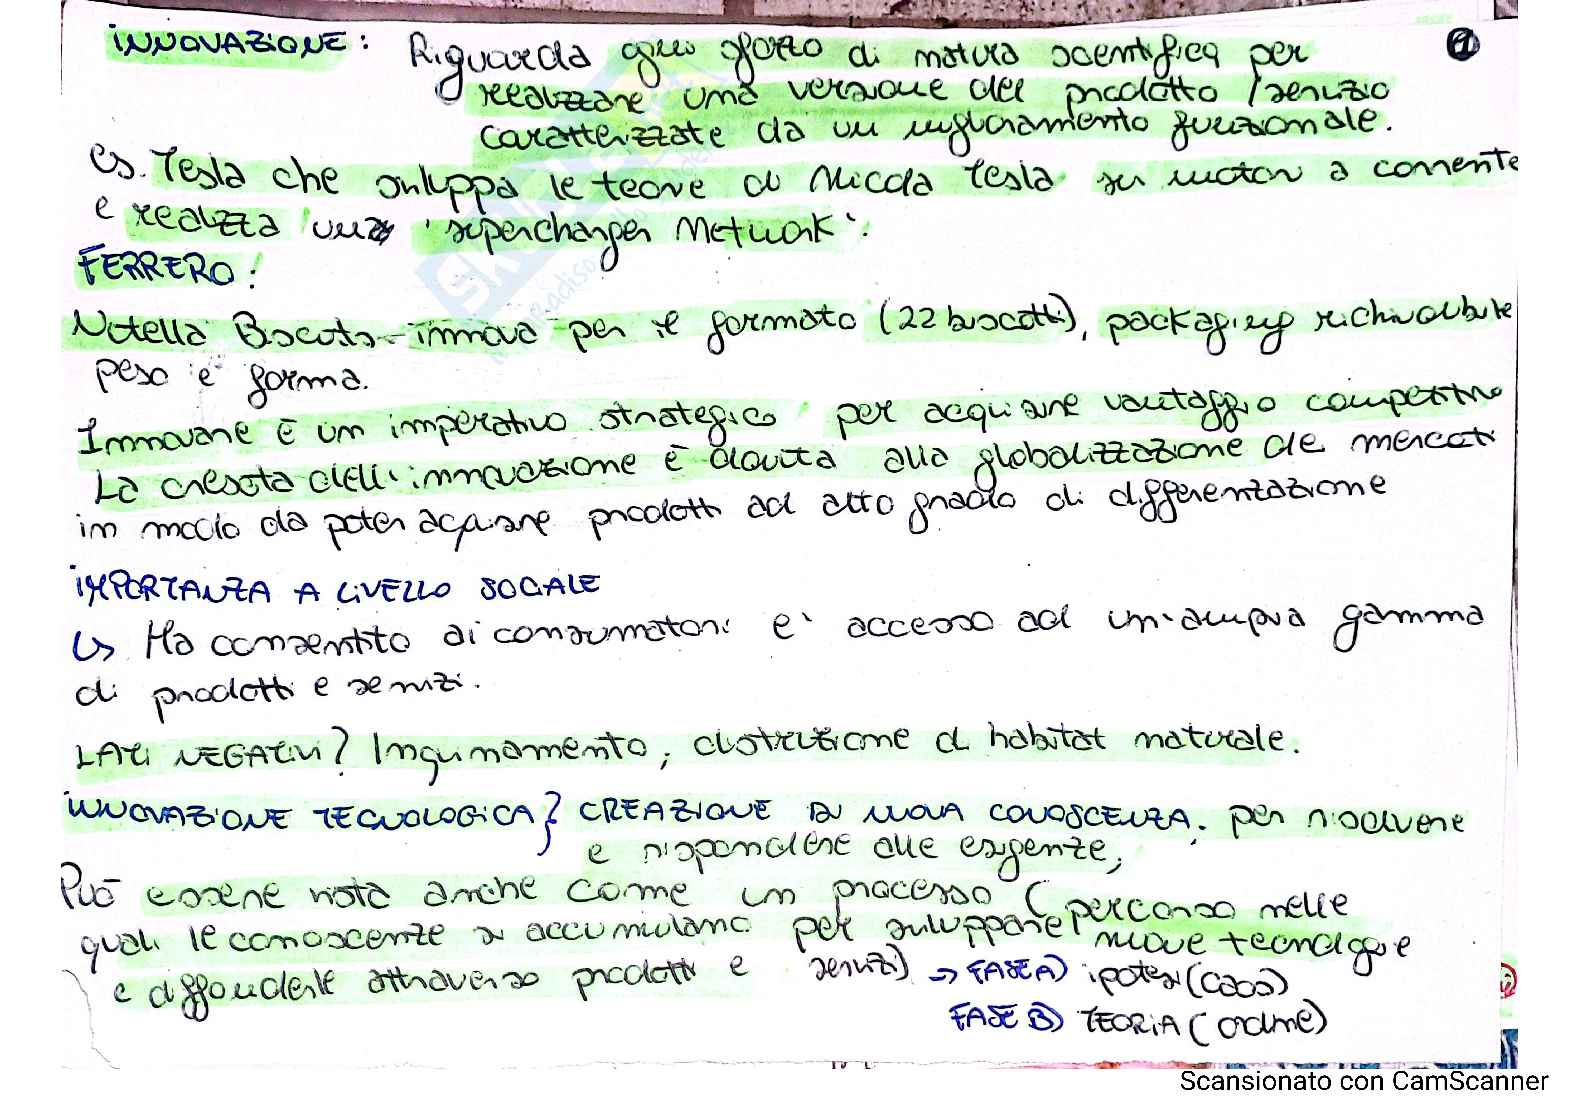 INNOVAZIONE: Riguarda ogni sforzo di natura scientifica per
1
realizzare una versione del prodotto/servizio
caratterizzate da un miglioramento funzionale.
es. Tesla che sviluppa le teorie di Nicola Tesla sui motori a corrente
e realizza una 'supercharger Network'.
FERRERO:
Nutella Biscuits - innova per il formato (22 biscotti), packaging richiudibile
peso e forma.
Innovare è un imperativo strategico per acquisire vantaggio competitivo
La crescita dell'innovazione è dovuta alla globalizzazione dei mercati
in modo da poter acquisire prodotti ad alto grado di differenziazione
IMPORTANZA A LIVELLO SOCIALE
↳ Ha consentito ai consumatori e' accesso ad un'ampia gamma
di prodotti e servizi.
LATI NEGATIVI? Inquinamento, distruzione di habitat naturale.
INNOVAZIONE TECNOLOGICA} CREAZIONE DI NUOVA CONOSCENZA. per risolvere
e rispondere alle esigenze,
Può essere nota anche come un processo (percorso nelle
quali le conoscenze si accumulano per sviluppare nuove tecnologie
e diffonderle attraverso prodotti e servizi) → FASE A) ipotesi (caos)
FASE B) TEORIA (ordine)
Scansionato con CamScanner